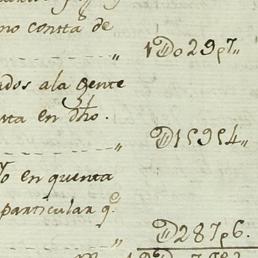 no consta de
„ 1U029p7„
ados ala Gente
sta en dho.
„ U159p4„
to en quenta
particular q.e
„ U287p6.